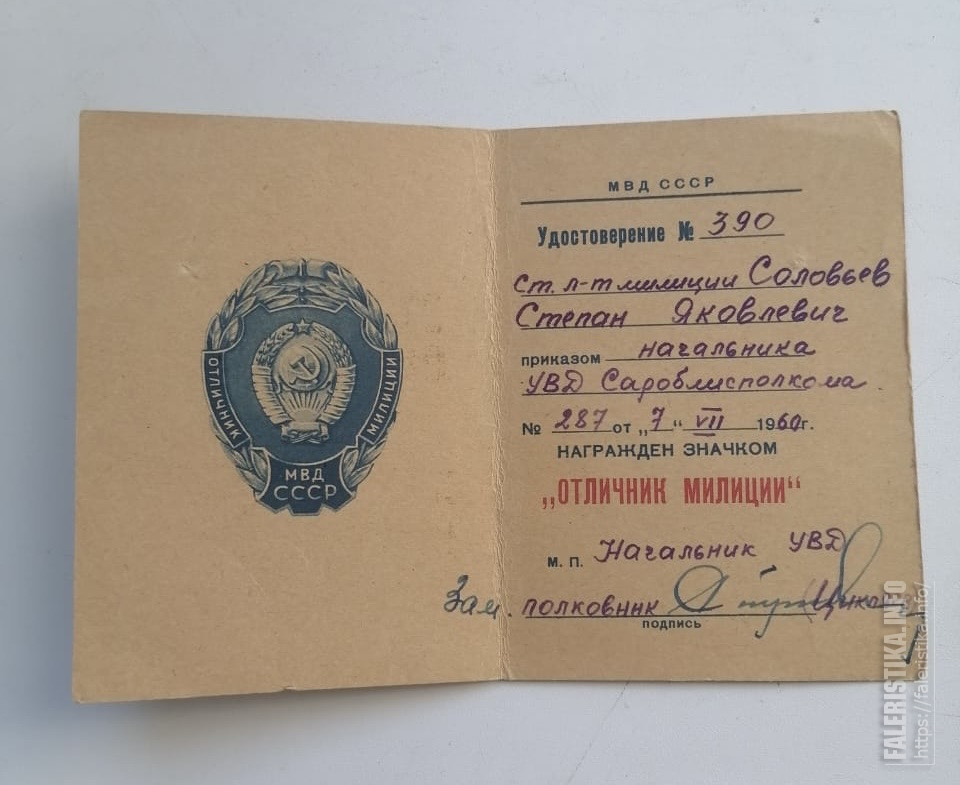 ОТЛИЧНИК МИЛИЦИИ
МВД
СССР
МВД СССР
Удостоверение № 390
Ст. л-т милиции Соловьев
Степан Яковлевич
приказом начальника
УВД Сароблисполкома
№ 287 от „7“ VII 1960г.
НАГРАЖДЕН ЗНАЧКОМ
„ОТЛИЧНИК МИЛИЦИИ“
М. П. Начальник УВД
Зам. полковник
подпись
FALERISTIKA.INFO
https://faleristika.info/